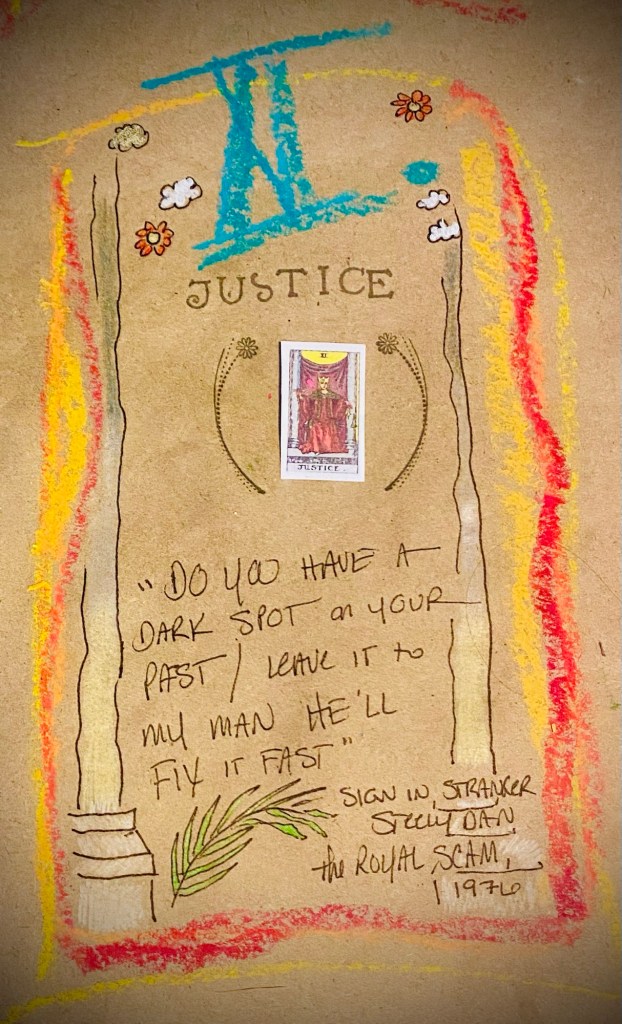 XI.
JUSTICE
XI
JUSTICE.
"DO YOU HAVE A
DARK SPOT on YOUR
PAST / LEAVE IT to
MY MAN HE'LL
FIX IT FAST"
SIGN IN, STRANGER
STEELY DAN,
the ROYAL SCAM,
1976